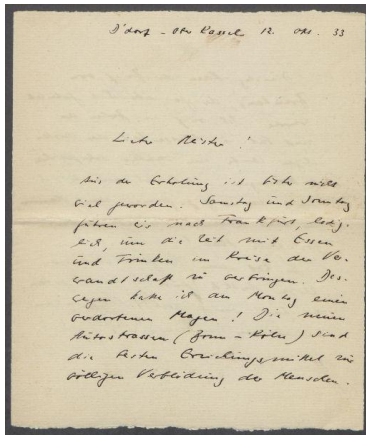 D'dorf - Ober Kassel 12. Okt. 33
Lieber Meister!
Aus der Erholung ist bisher nicht
viel geworden. Samstag und Sonntag
fuhren wir nach Frankfurt ledig-
lich, um die Zeit mit Essen
und Trinken im Kreise der Ver-
wandtschaft zu verbringen. Des-
wegen hatte ich am Montag einen
verdorbenen Magen! Die neuen
Autostrassen (Bonn - Köln) sind
die besten Erziehungsmittel zur
völligen Verblödung der Menschen.